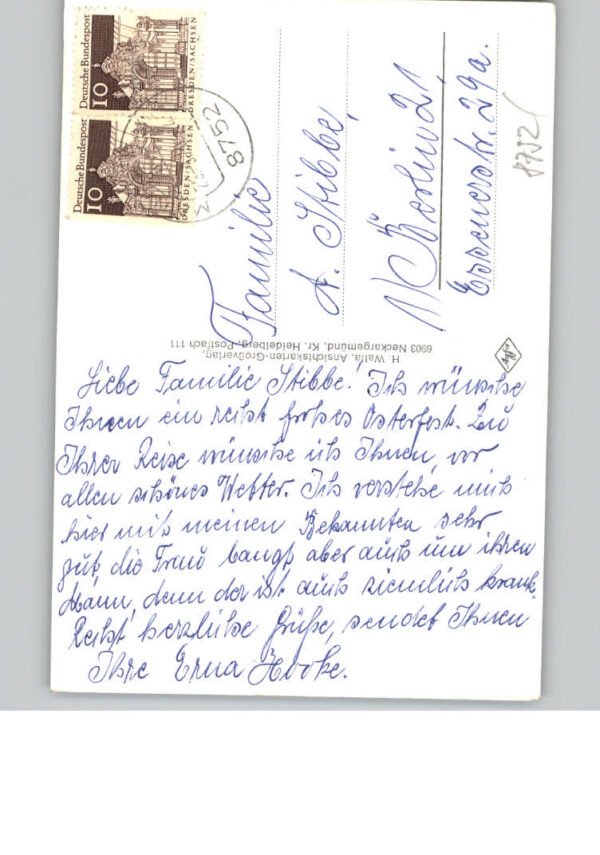 Deutsche Bundespost
10
DRESDEN-SACHSEN
Deutsche Bundespost
10
DRESDEN-SACHSEN
8752
Familie
A. Stibbe,
1) Berlin 21,
Essenerstr. 29a.
8752/
H. Walfa, Ansichtskarten-Großverlag,
6903 Neckargemünd, Kr. Heidelberg, Postfach 111
Agfa
Liebe Familie Stibbe! Ich wünsche
Ihnen ein recht frohes Osterfest. Zu
Ihrer Reise wünsche ich Ihnen, vor
allen schönes Wetter. Ich verstehe mich
hier mit meinen Bekannten sehr
gut, die Frau bangt aber auch um ihren
Mann, denn der ist auch ziemlich krank.
Recht herzliche Grüße, sendet Ihnen
Ihre Erna